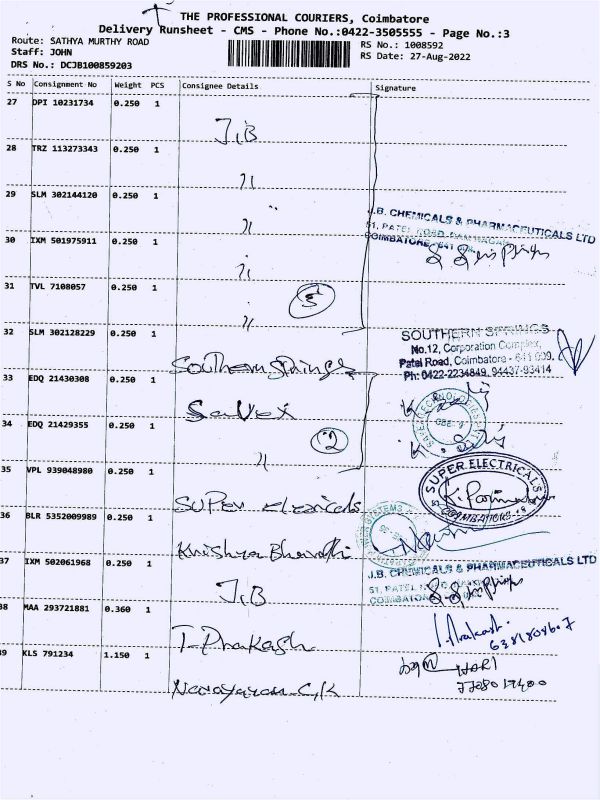 THE PROFESSIONAL COURIERS, Coimbatore
Delivery Runsheet - CMS - Phone No.:0422-3505555 - Page No.:3
Route: SATHYA MURTHY ROAD
RS No.: 1008592
Staff: JOHN
RS Date: 27-Aug-2022
DRS No.: DCJB100859203
S No Consignment No Weight PCS Consignee Details Signature
27 DPI 10231734 0.250 1
J.B
28 TRZ 113273343 0.250 1
29 SLM 302144120 0.250 1
J.B. CHEMICALS & PHARMACEUTICALS LTD
51, PATEL ROAD, RAM NAGAR
COIMBATORE - 641
30 IXM 501975911 0.250 1
31 TVL 7108057 0.250 1
5
32 SLM 302128229 0.250 1
Southern Springs
SOUTHERN SPRINGS
No.12, Corporation Complex,
Patel Road, Coimbatore - 641 009.
Ph: 0422-2234849, 94437-93414
33 EDQ 21430308 0.250 1
Savex
SAVEX TECHNOLOGIES
CBE-9
34 EDQ 21429355 0.250 1
2
35 VPL 939048980 0.250 1
Super
SUPER ELECTRICALS
COIMBATORE-18
36 BLR 5352009989 0.250 1
Krishna Bharathi
SYSTEMS
37 IXM 502061968 0.250 1
J.B
J.B. CHEMICALS & PHARMACEUTICALS LTD
51, PATEL
COIMBATORE
38 MAA 293721881 0.360 1
T. Prakash
Prakash.
39 KLS 791234 1.150 1
Narayanan C,K
HARI